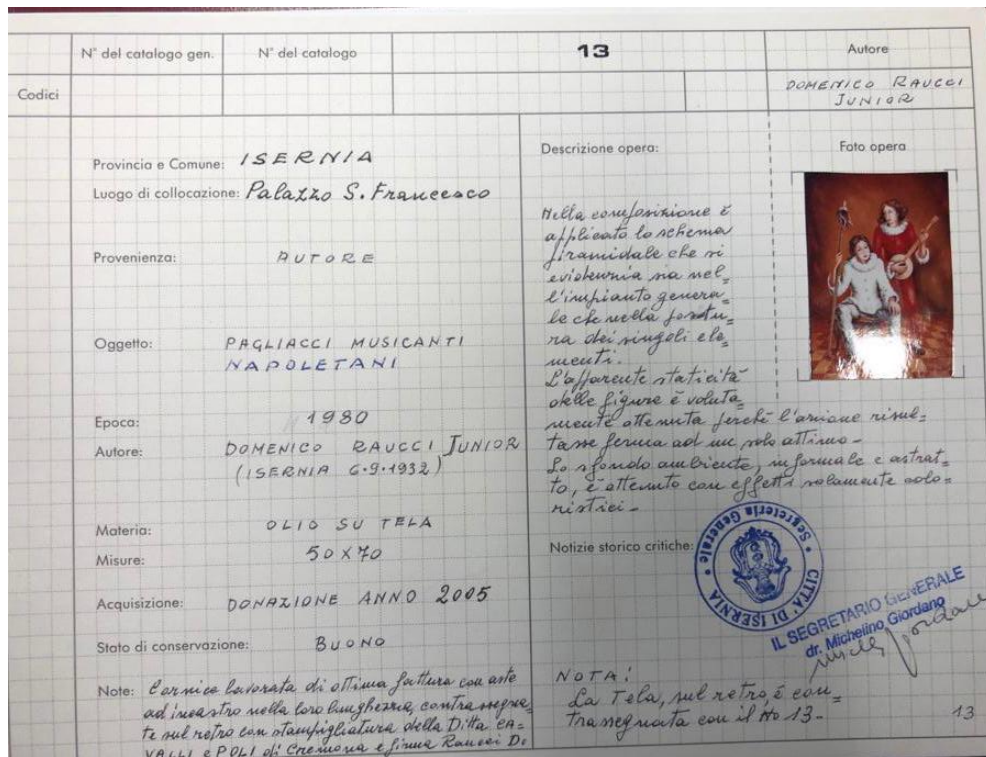 N° del catalogo gen.
N° del catalogo
13
Autore
Codici
DOMENICO RAUCCI
JUNIOR
Provincia e Comune: ISERNIA
Luogo di collocazione: Palazzo S. Francesco
Provenienza: AUTORE
Oggetto: PAGLIACCI MUSICANTI
NAPOLETANI
Epoca: 1980
Autore: DOMENICO RAUCCI JUNIOR
(ISERNIA 6.9.1932)
Materia: OLIO SU TELA
Misure: 50 X 70
Acquisizione: DONAZIONE ANNO 2005
Stato di conservazione: BUONO
Note: Cornice lavorata di ottima fattura con aste
ad incastro nella loro lunghezza, contrassegna=
te sul retro con stampigliatura della Ditta CA=
VALLI e POLI di Cremona e firma Raucci Do
Descrizione opera:
Foto opera
Nella composizione è
applicato lo schema
piramidale che si
evidenzia sia nel=
l'impianto genera=
le che nella postu=
ra dei singoli ele=
menti.
L'apparente staticità
delle figure è voluta=
mente ottenuta perché l'azione risul=
tasse ferma ad un solo attimo-
Lo sfondo ambiente, informale e astrat=
to, è ottenuto con effetti solamente colo=
ristici-
Notizie storico critiche:
CITTA' DI ISERNIA
Segreteria Generale
IL SEGRETARIO GENERALE
dr. Michelino Giordano
NOTA:
La Tela, sul retro, è con=
trassegnata con il No 13-
13